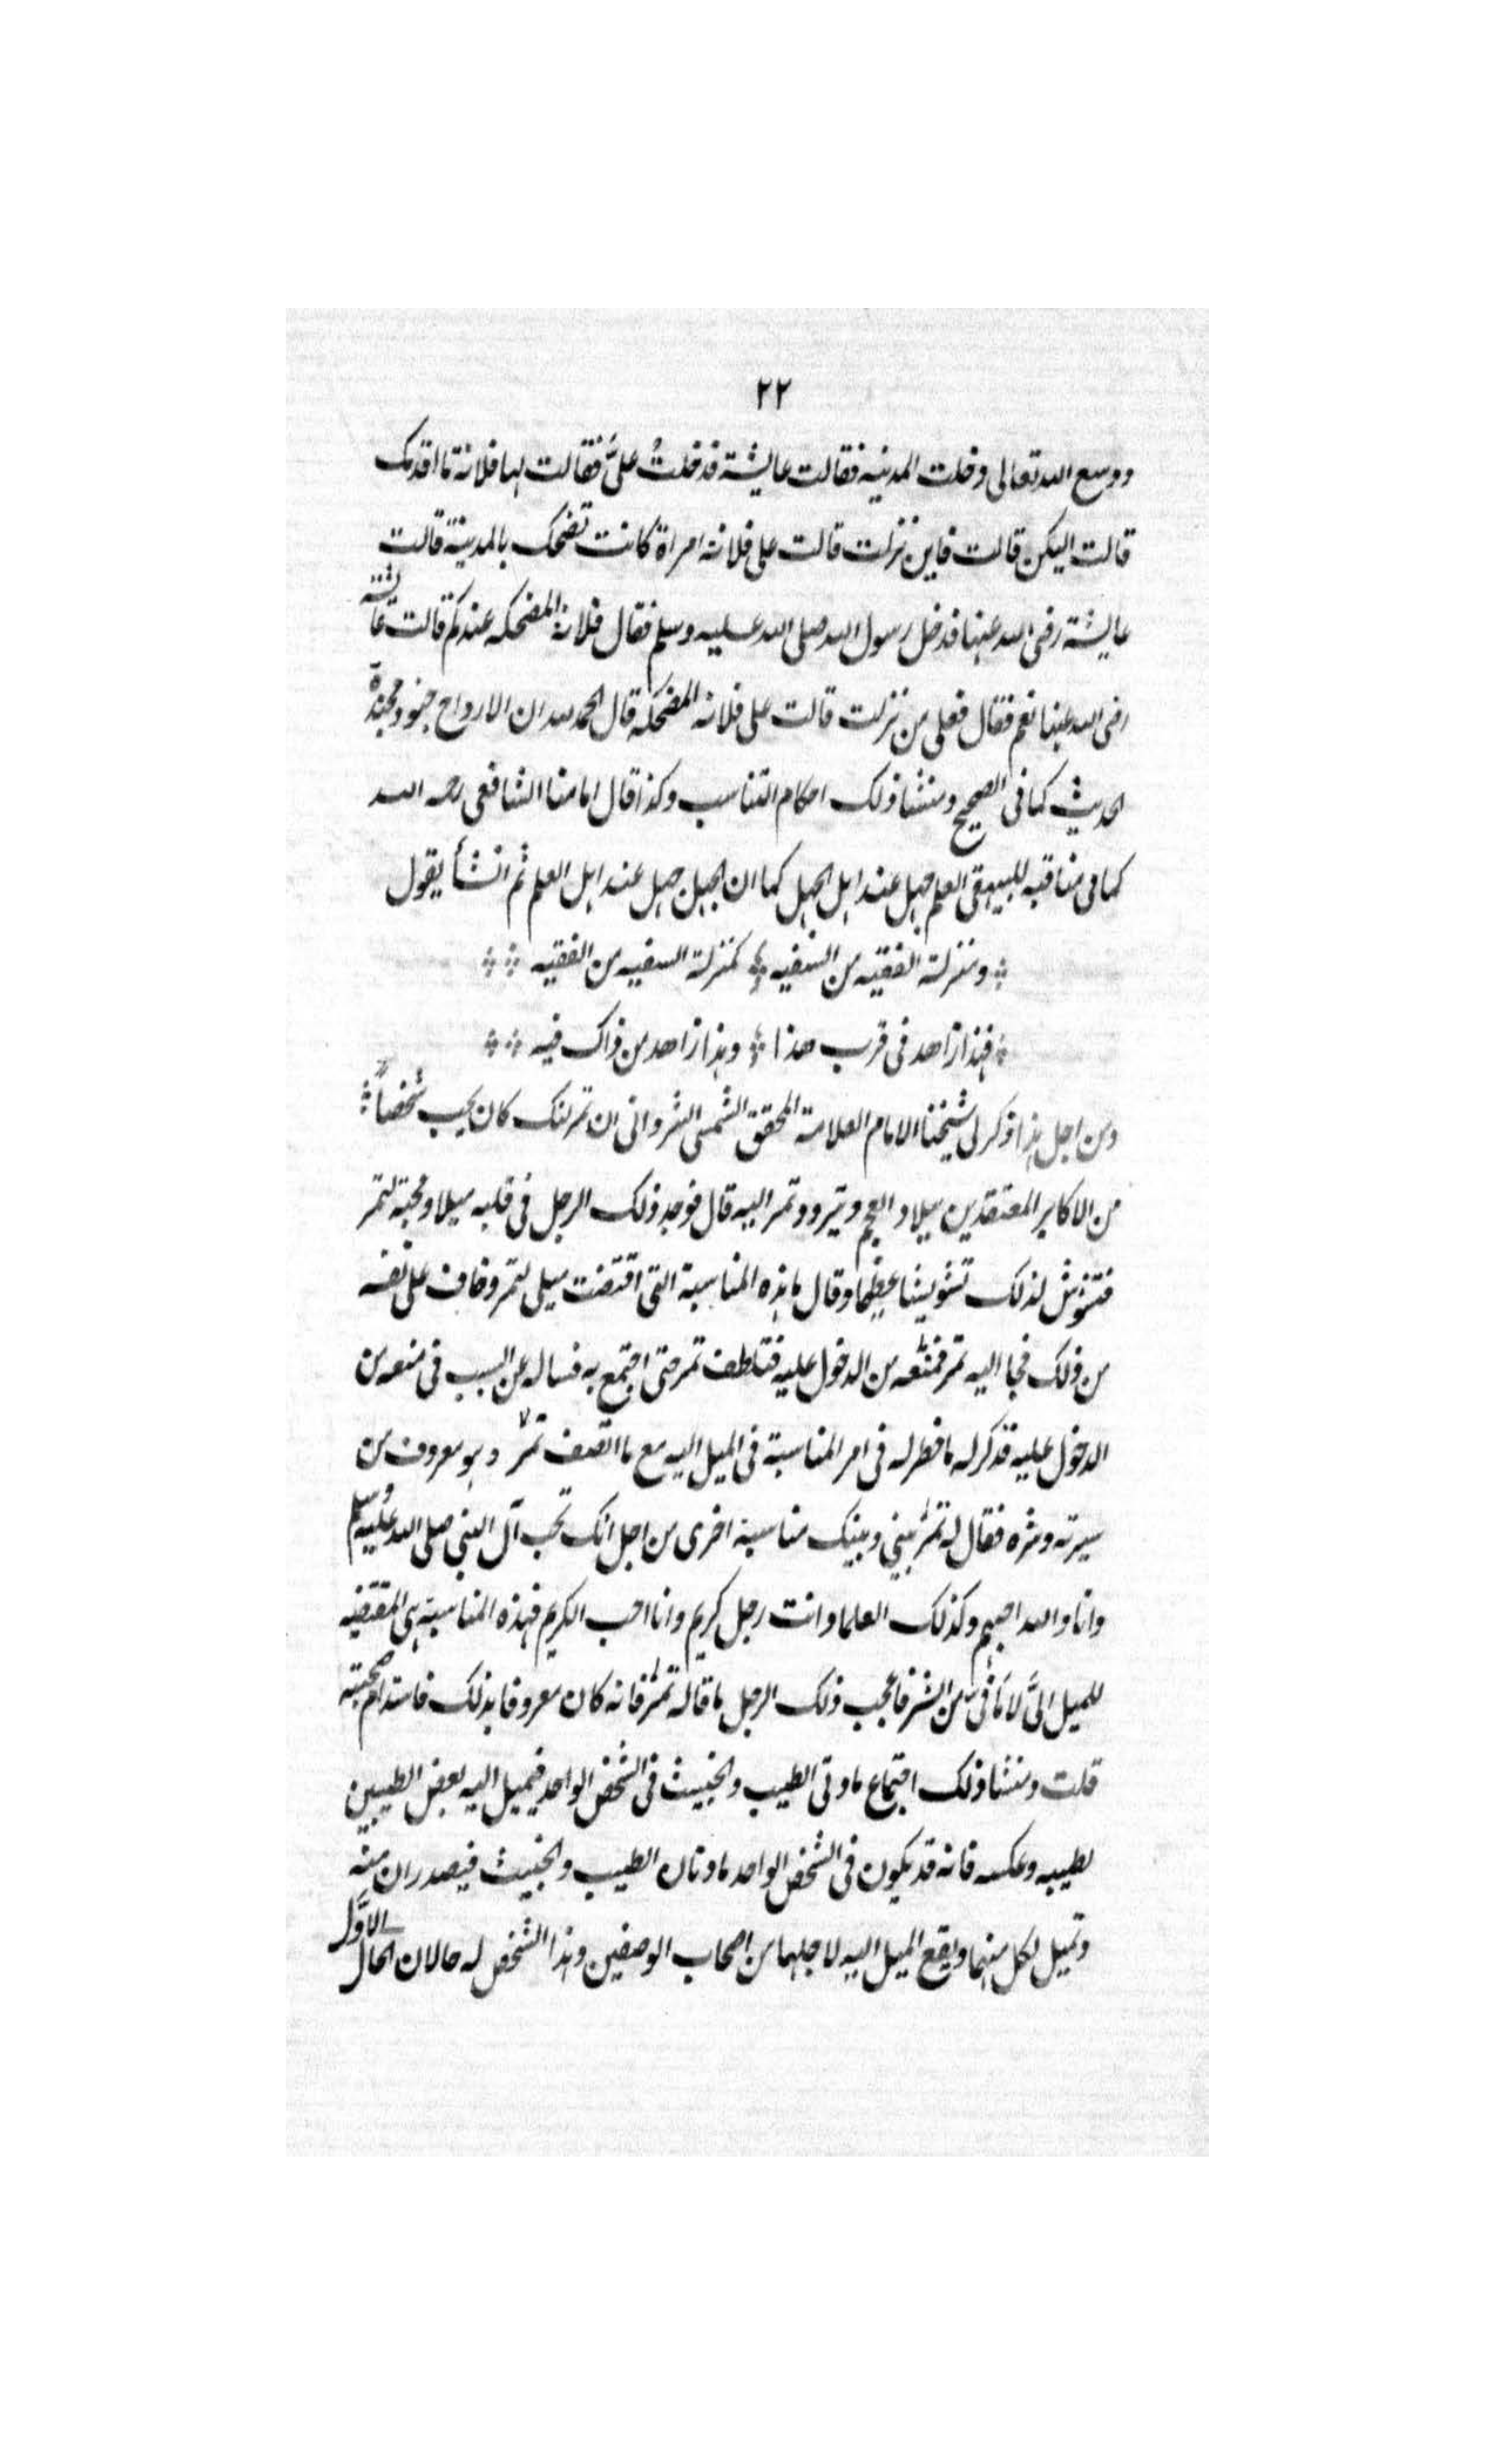 ٢٢
ووسع الله تعالى دخلت المدينه فقالت عايشة فدخلتُ علىَّ فقالت لها فلانة ما اقدمك
قالت اليكن قالت فاين نزلت قالت على فلانة امراة كانت تضحك بالمدينة قالت
عايشة رضى الله عنها فدخل رسول الله صلى الله عليه وسلم فقال فلانة المضحكه عندكم قالت عايشة
رضى الله عنها نعم فقال فعلى من نزلت قالت على فلانة المضحكه قال الحمد لله ان الارواح جنود مجندة
الحديث كما فى الصحيح ومنشا ذلك احكام التناسب وكذا قال امامنا الشافعى رحمه الله
كما فى مناقبه للبيهقى العلم جهل عند اهل الجهل كما ان الجهل جهل عند اهل العلم ثم انشأ يقول
ومنزلة الفقيه من السفيه كمنزلة السفيه من الفقيه
فهذا زاهد فى قرب هذا وهذا زاهد من ذاك فيه
ومن اجل هذا ذكر لى شيخنا الامام العلامة المحقق الشمس الشروانى ان تمرلنك كان يحب شخصاً
من الاكابر المعتقدين ببلاد العجم ويتردد تمر اليه قال فوجد ذلك الرجل فى قلبه ميلا ومحبة لتمر
فتشوش لذلك تشويشا عظيما وقال ما هذه المناسبة التى اقتضت ميلى لتمر وخاف على نفسه
من ذلك فجا اليه تمر فمنعه من الدخول عليه فتلطف تمر حتى اجتمع به فساله عن السبب فى منعه من
الدخول عليه فذكر له ما خطر له فى امر المناسبة فى الميل اليه مع ما اتصف تمر وهو معروف من
سيرته وشره فقال له تمر بينى وبينك مناسبة اخرى من اجل انك تحب آل النبى صلى الله عليه وسلم
وانا والله احبهم وكذلك العلما وانت رجل كريم وانا احب الكريم فهذه المناسبة هى المقتضيه
للميل الىَّ لا ما فىَّ من الشر فاعجب ذلك الرجل ما قاله تمر فانه كان معروفا بذلك فاستدام صحبته
قلت ومنشا ذلك اجتماع مادتى الطيب والخبيث فى الشخص الواحد فيميل اليه بعض الطيبين
لطيبه وعكسه فانه قد يكون فى الشخص الواحد مادتان الطيب والخبيث فيصدران منه
وتميل لكل منهما ويقع الميل اليه لاجلهما من اصحاب الوصفين وهذا الشخص له حالان الحال الاوَّل